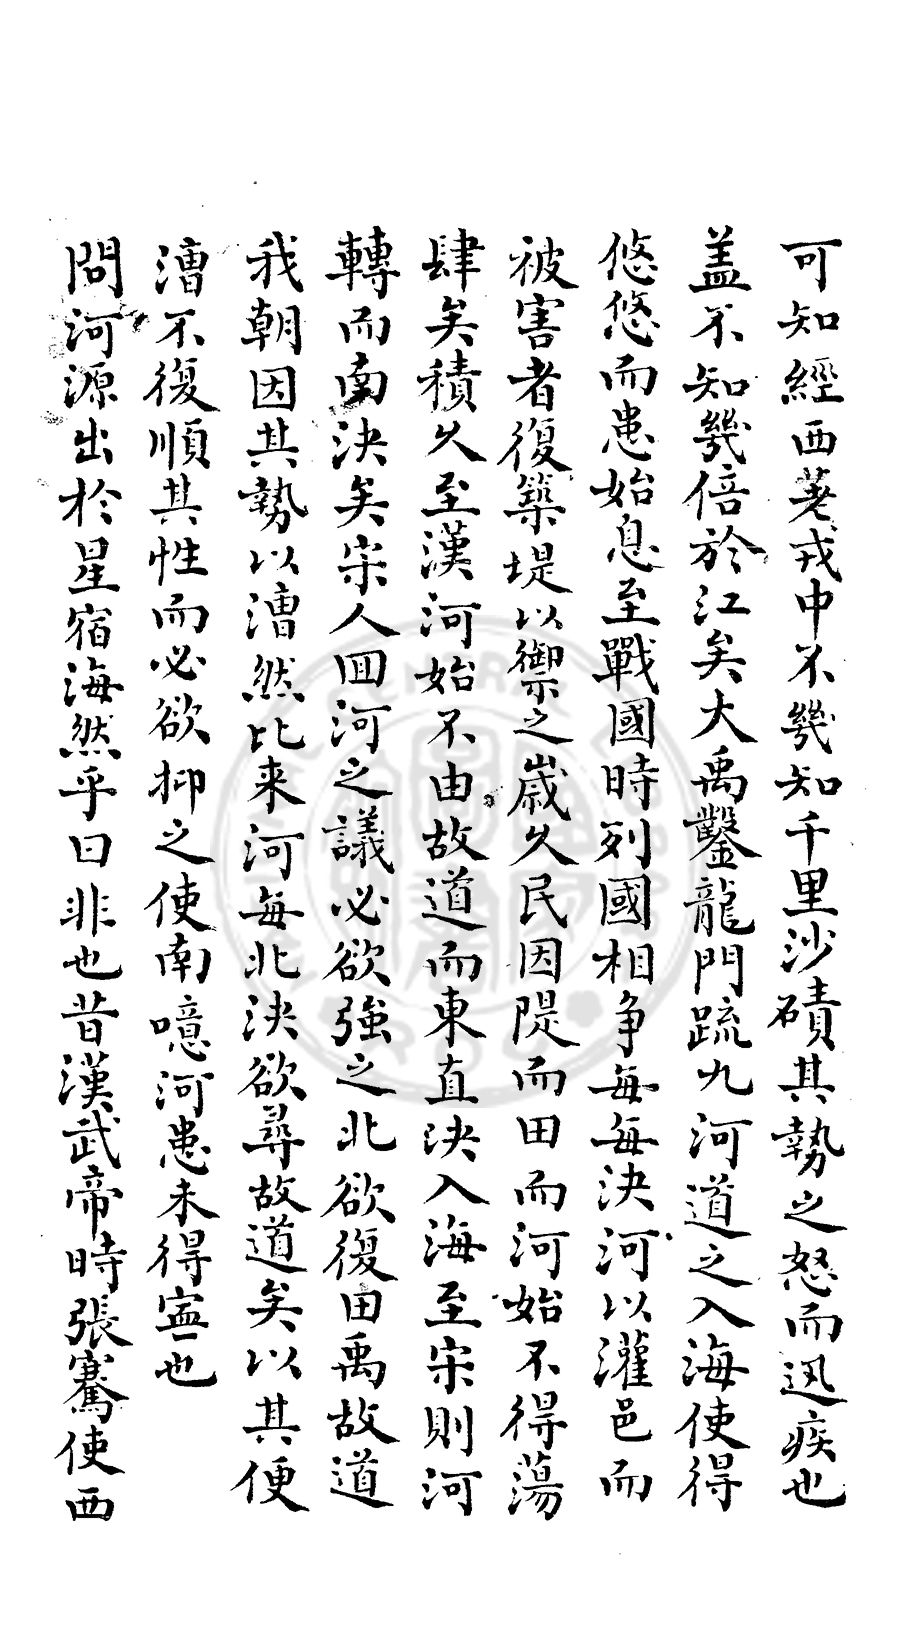 可知經西羌戎中不幾知千里沙磧其勢之怒而迅疾也
盖不知幾倍於江矣大禹鑿龍門疏九河道之入海使得
悠悠而患始息至戰國時列國相争每每决河以灌邑而
被害者復築堤以禦之歲久民因隄而田而河始不得蕩
肆矣積久至漢河始不由故道而東直决入海至宋則河
轉而南决矣宋人囬河之議必欲強之北欲復田禹故道
我朝因其勢以漕然比来河每北决欲尋故道矣以其便
漕不復順其性而必欲抑之使南噫河患未得寍也
問河源出於星宿海然乎曰非也昔漢武帝時張騫使西